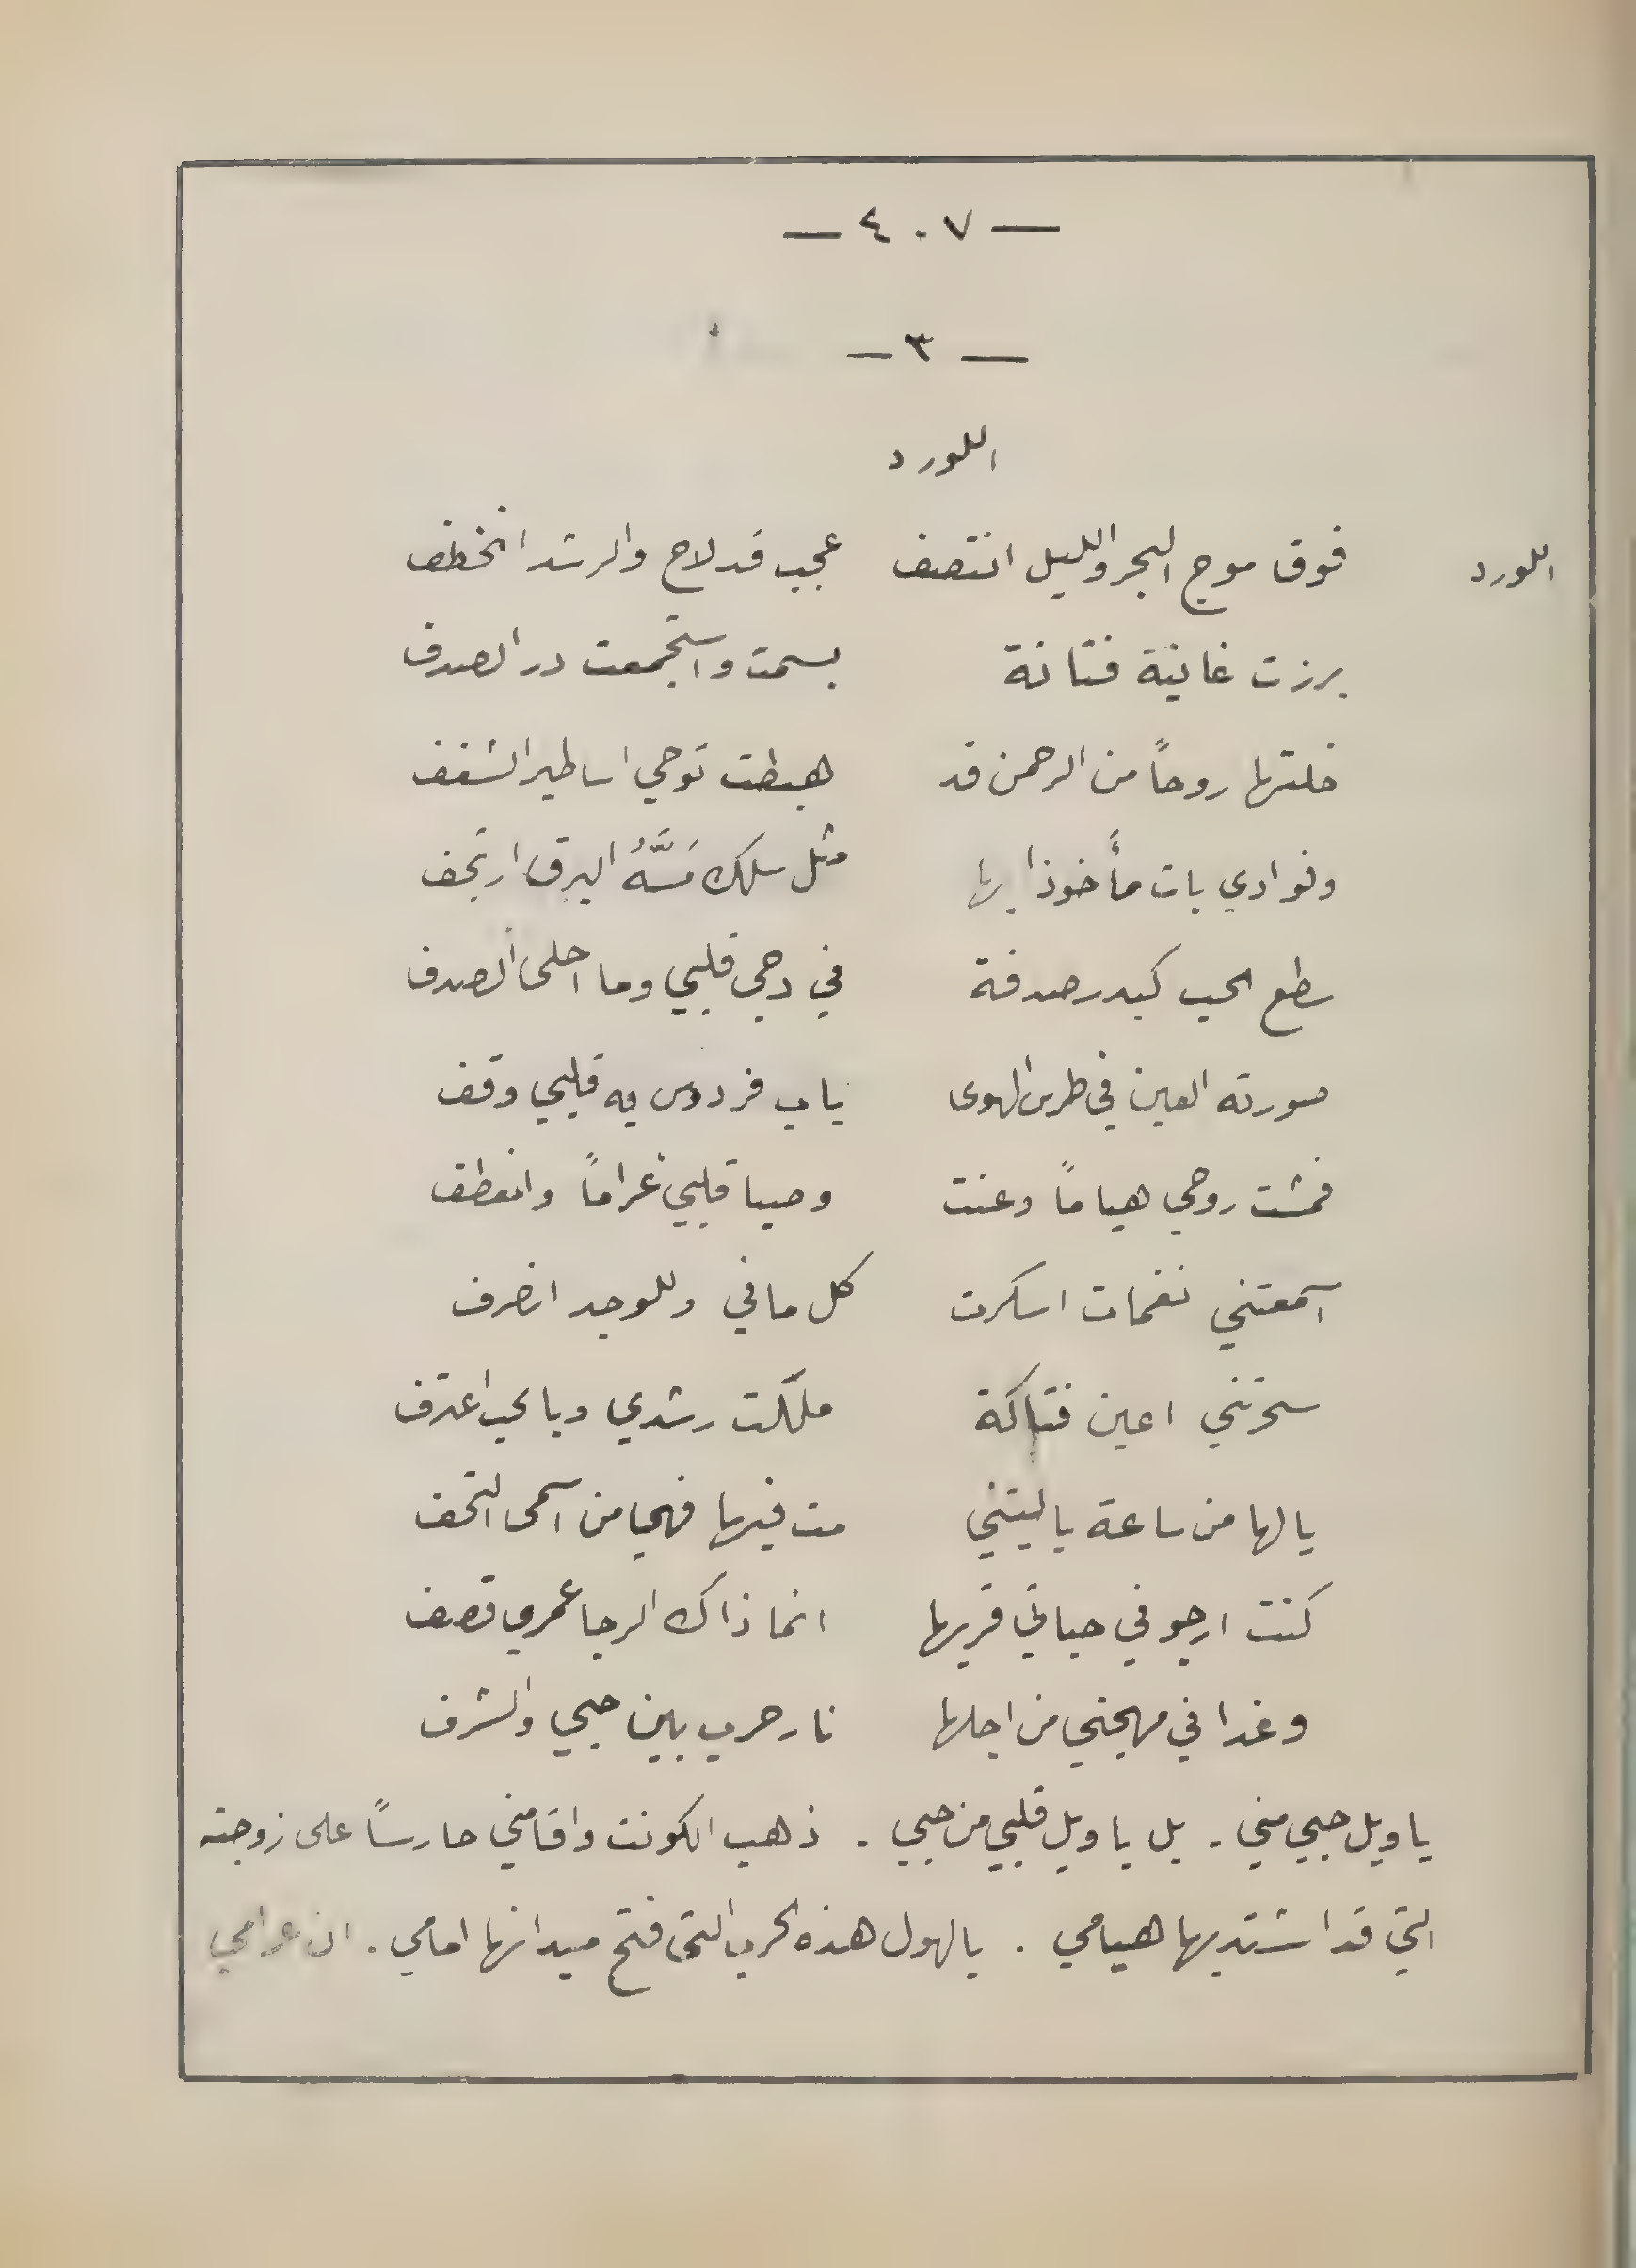 — ٤٠٧ —
— ٣ —
اللورد
اللورد فوق موج البحر والليل انتصف عجب قد لاح والرشد انخطف
برزت غانية فتانة بسمت واستجمعت در الصدف
خلتها روحاً من الرحمن قد هبطت توحي اساطير الشغف
وفوادي بات مأخوذا بها مثل سلك مَسَّهُ البرق ارتجف
سطع الحب كبدر صدفة في دجى قلبي وما احلى الصدف
صورته العين في طرس الهوى باب فردوس به قلبي وقف
فمشت روحي هياماً وعنت وصبا قلبي غراماً وانعطف
اسمعتني نغمات اسكرت كل ما في وللوجد انصرف
سحرتني اعين فتاكة ملّكت رشدي وبالحب اعترف
يا لها من ساعة يا ليتني مت فيها فهي من اسمى التحف
كنت ارجو في حياتي قربها انما ذاك الرجا عمري قصف
وغدا في مهجتي من اجلها نار حرب بين حبي والشرف
يا ويل حبي مني . بل يا ويل قلبي من حبي . ذهب الكونت واقامني حارساً على زوجته
التي قد اشتد بها هيامي . يا لهول هذه الحرب التي فتح ميدانها امامي . ان غرامي